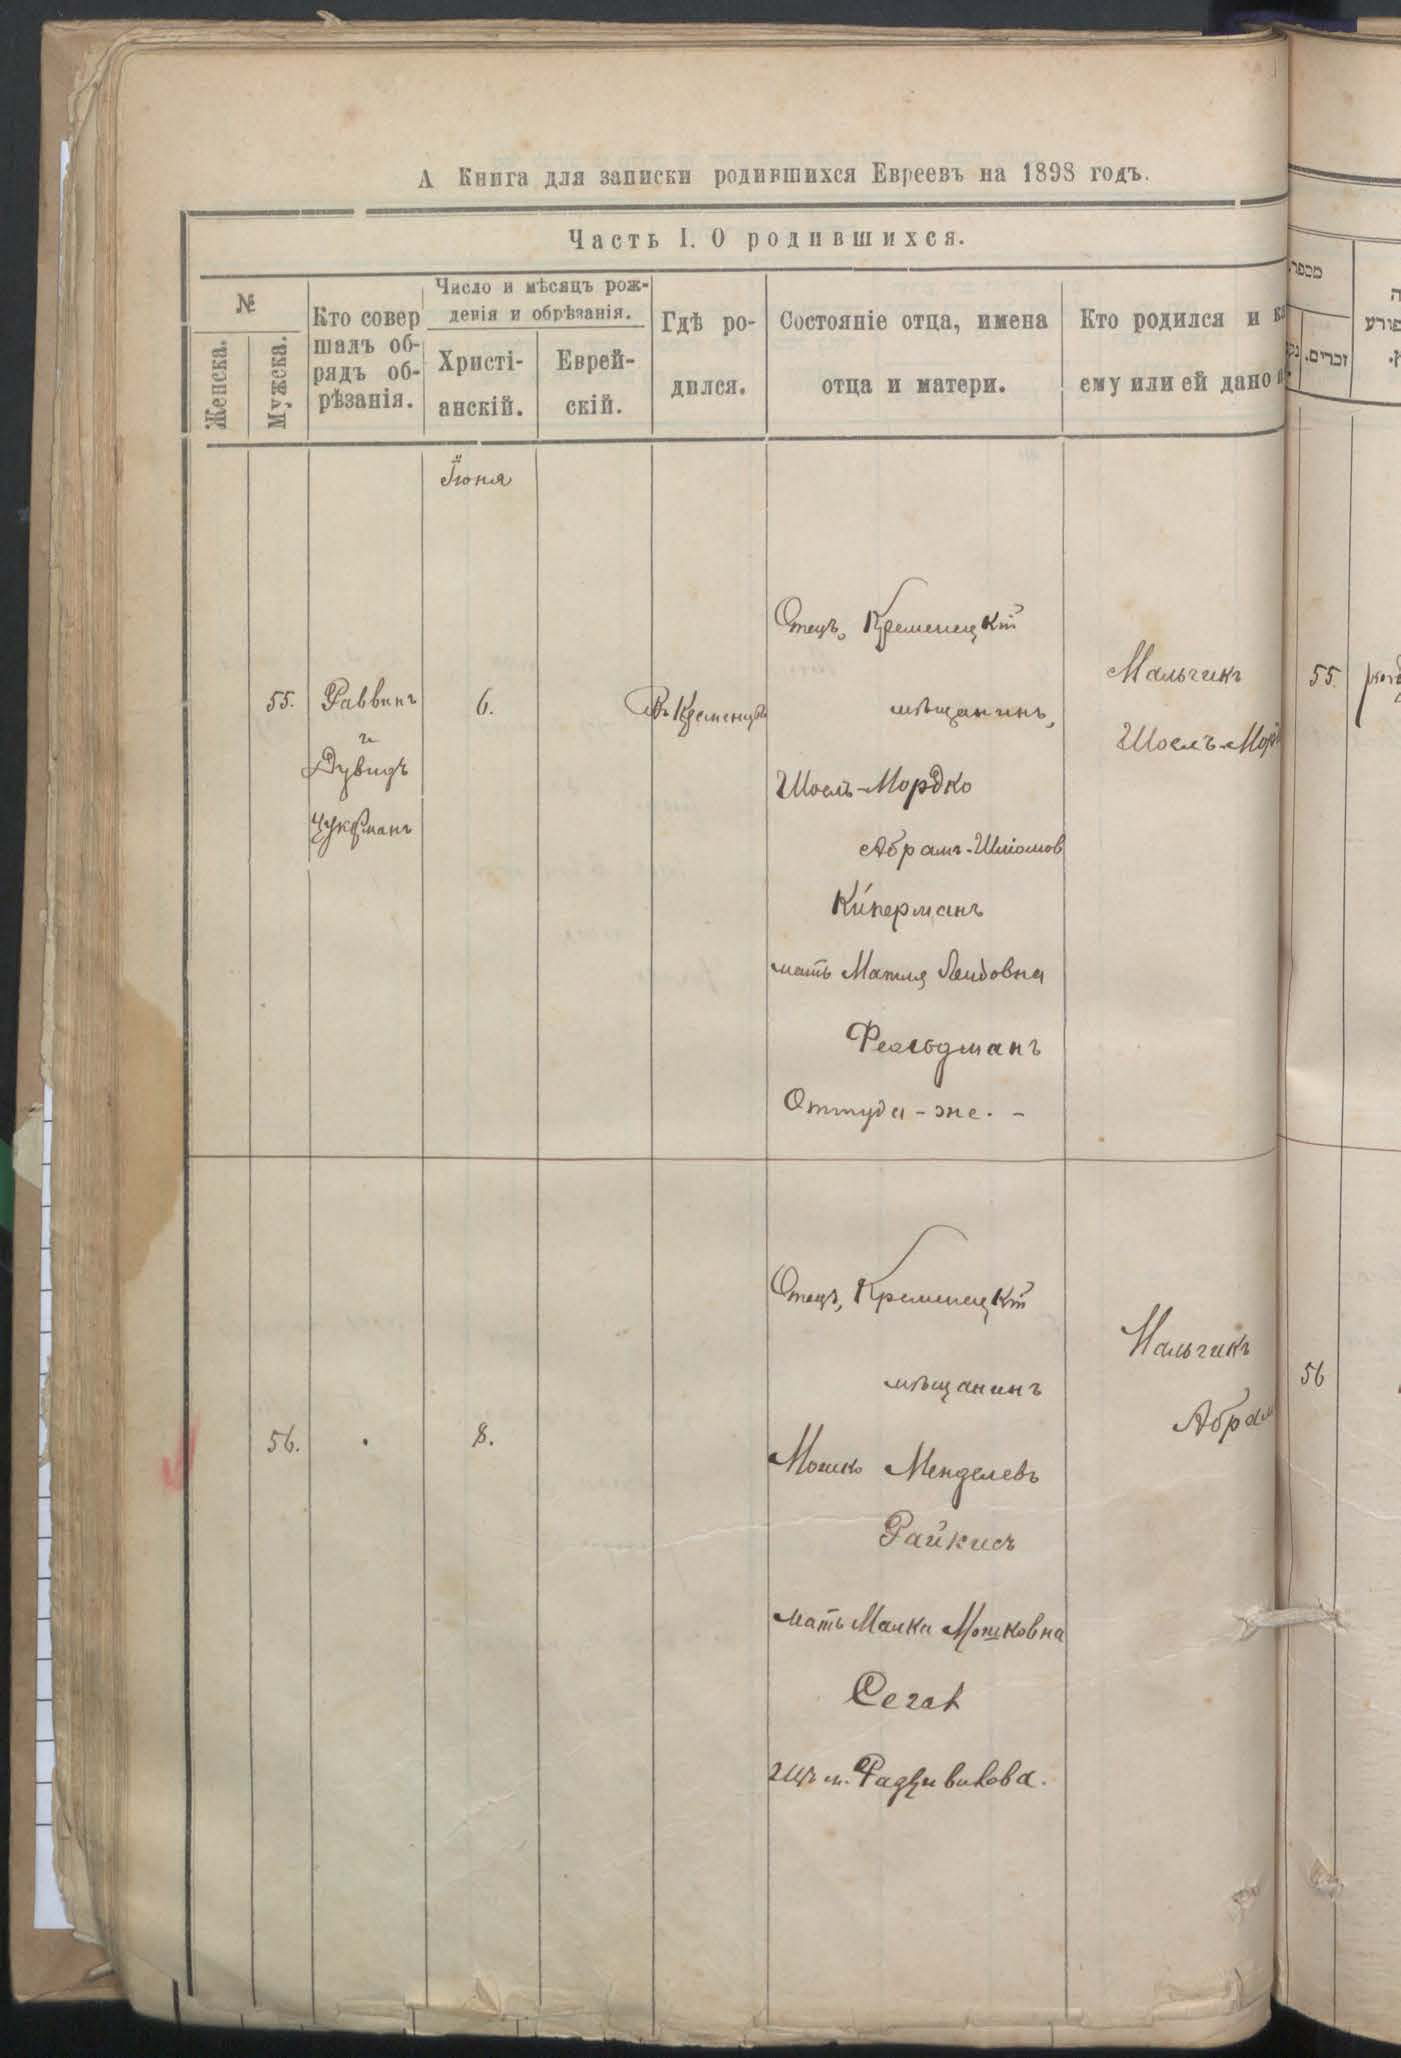 А Книга для записки родившихся Евреевъ на 1898 годъ.
Часть I. О родившихся.
№
Женска.
Мужска.
Кто совер
шалъ об-
рядъ об-
рѣзанія.
Число и мѣсяцъ рож-
денія и обрѣзанія.
Христі-
анскій.
Еврей-
скій.
Гдѣ ро-
дился.
Состояніе отца, имена
отца и матери.
Кто родился и
ему или ей дано
מספר
זכרים.
Іюня
55.
Раввинъ
и
Дувидъ
Цукерманъ
6.
Въ Кременцѣ
Отецъ, Кременецкій
мѣщанинъ,
Шоелъ-Мордко
Абрамъ-Шліомов
Киперманъ
мать Матля Лейбовна
Фельдманъ
Оттуда-же. -
Мальчикъ
Шоелъ-Морд
55.
56.
8.
Отецъ, Кременецкій
мѣщанинъ
Мошко Менделевъ
Райкисъ
мать Малка Мошковна
Сегал
изъ м. Радзивилова.
Мальчикъ
Абрам
56